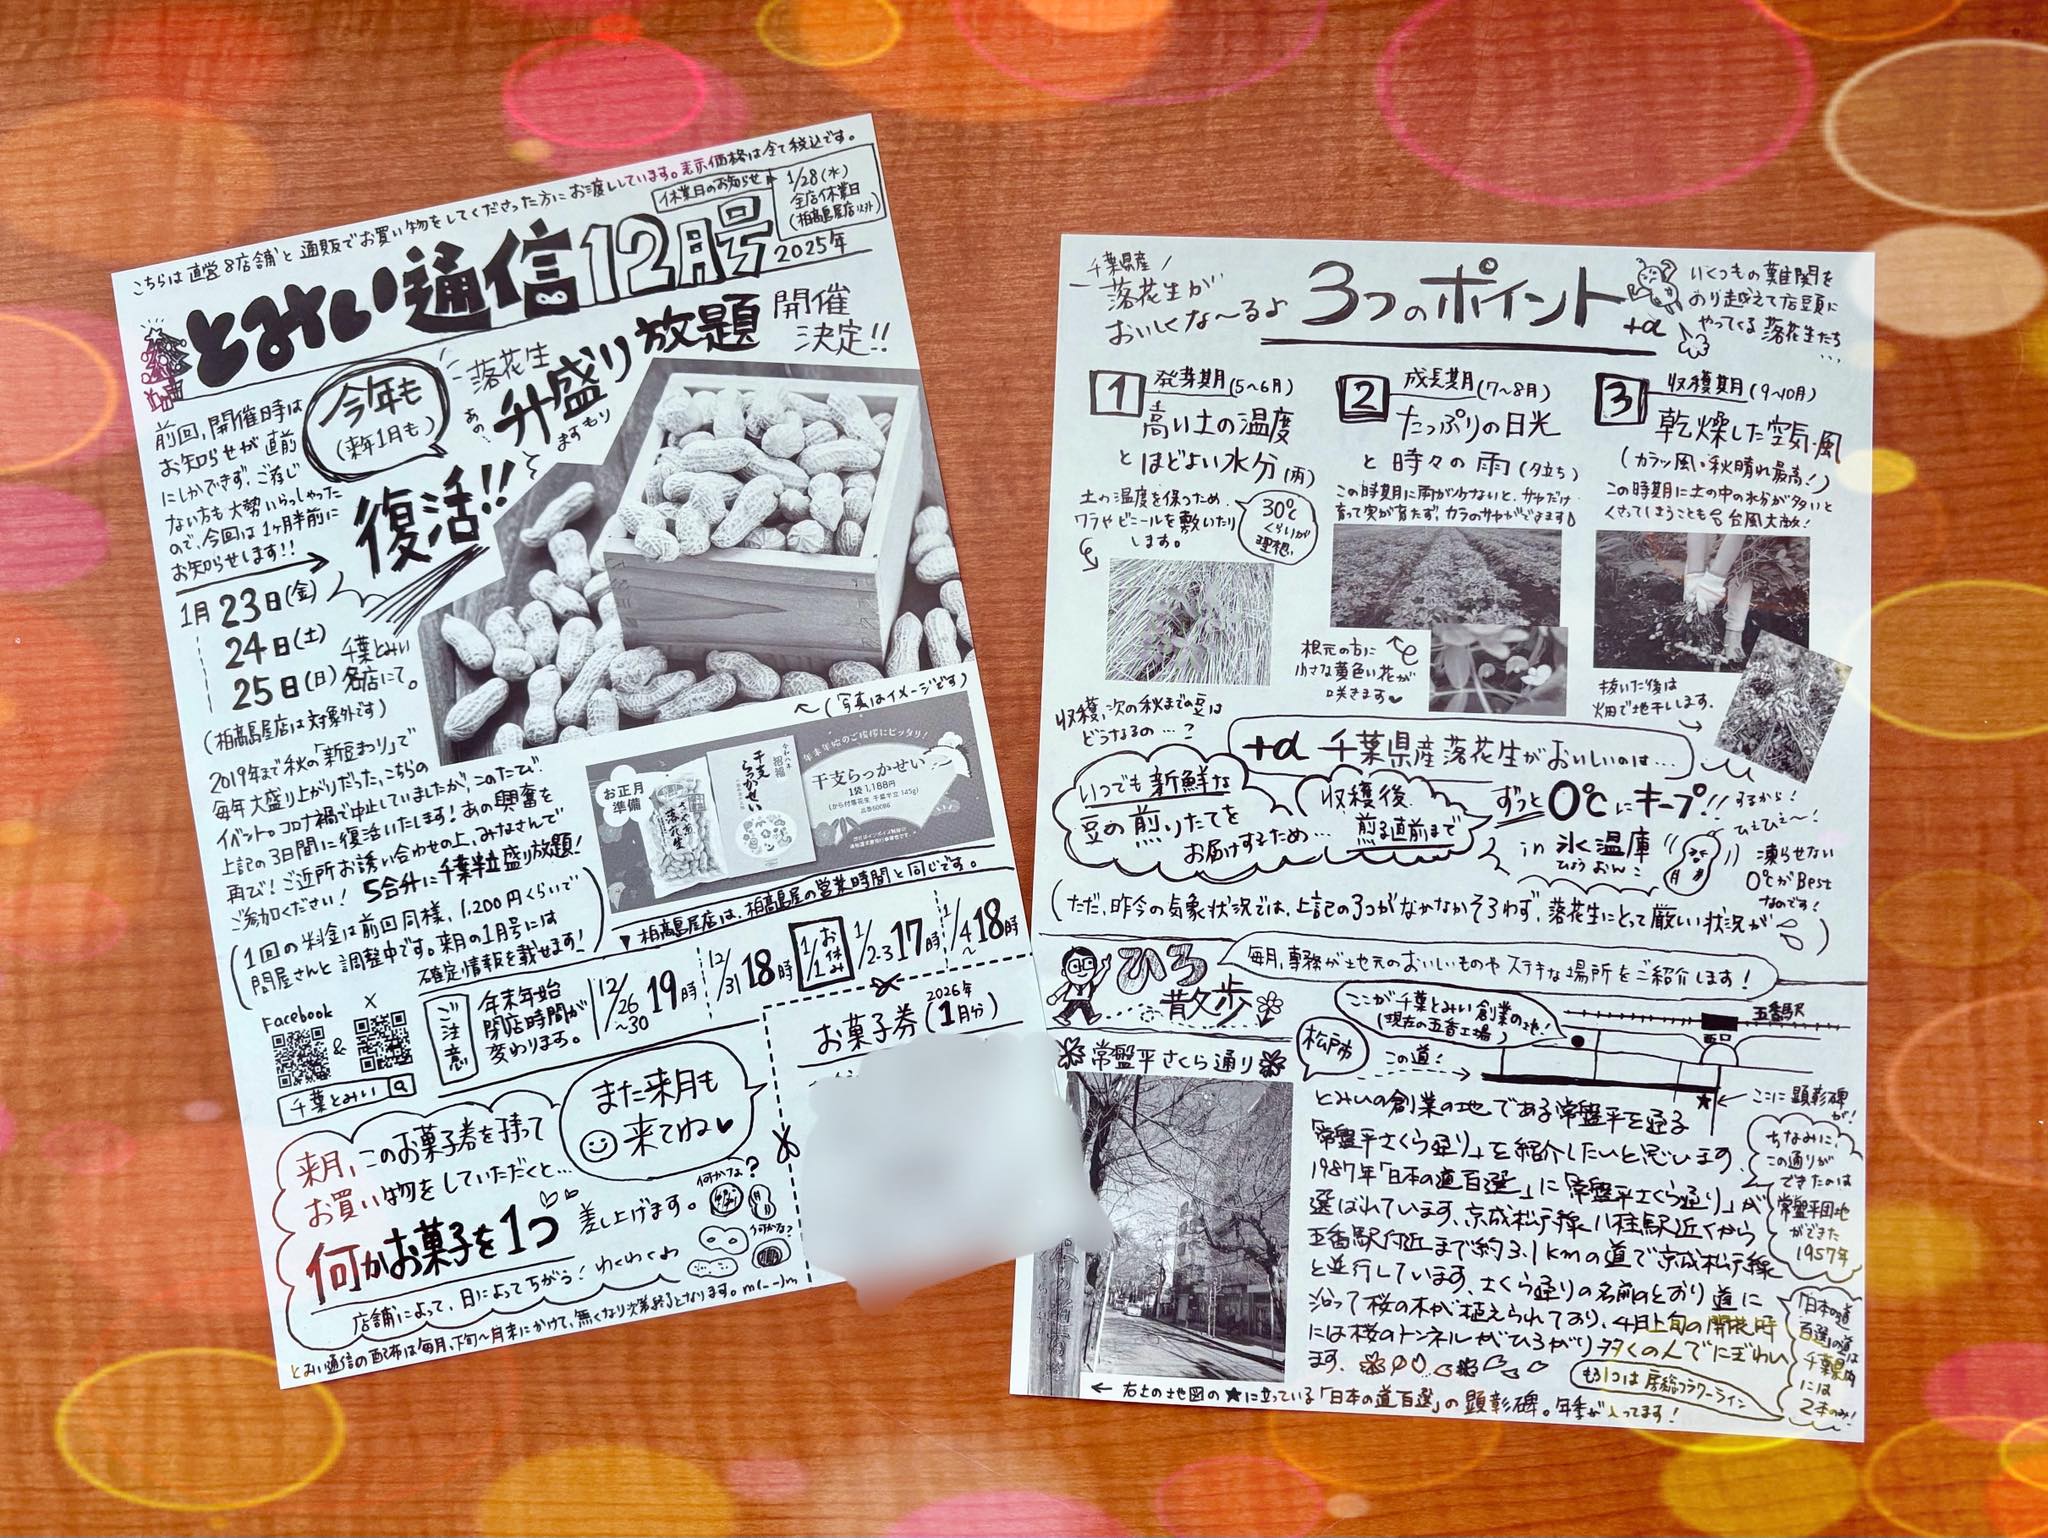 こちらは直営8店舗と通販でお買い物をしてくださった方にお渡ししています。表示価格は全て税込です。
休業日のお知らせ
1/28(水)
全店休業日
(柏髙島屋店以外)
とみい通信12月号
2025年
今年も
(来年1月も)
落花生
あの…
升盛り放題
ますもり
開催
決定!!
復活!!
前回、開催日時は
お知らせが直前
にしかできず、ご存じ
ない方も大勢いらっしゃった
ので、今回は1ヶ月半前に
お知らせします!!
1月
23日(金)
24日(土)
25日(日)
千葉とみい
各店にて。
(柏髙島屋店は対象外です)
(写真はイメージです)
2019年まで秋の「新豆まつり」で
毎年大盛り上がりだった、こちらの
イベント。コロナ禍で中止していましたが、このたび!
上記の3日間に復活いたします!あの興奮を
再び!ご近所お誘い合わせの上、みなさんで
ご参加ください! 5合升に千葉半立盛り放題!
(1回の料金は前回同様、1,200円くらいで
問屋さんと調整中です。来月の1月号には
確定情報を載せます!)
お正月
準備
さや煎
落花生
令和八年
招福
干支
らっかせい
年末年始のご挨拶にピッタリ!
干支らっかせい
1袋1,188円
(から付落花生 千葉半立 145g)
品番60086
▼柏髙島屋店は、柏髙島屋の営業時間と同じです。
ご注意
年末年始
閉店時間が
変わります。
12/26~30 19時
12/31 18時
1/1 お休み
1/2-3 17時
1/4~ 18時
Facebook
&
X
千葉とみい
お菓子券(2026年1月分)
また来月も
来てね♥
来月、このお菓子券を持って
お買い物をしていただくと…
何かお菓子を1つ
差し上げます。
何かな?
何かな?
店舗によって、日によってちがう!わくわくね
とみい通信の配布は毎月、下旬~月末にかけて、無くなり次第終了となります。m(_ _)m
千葉県産
落花生が
おいしくな~るよ
3つのポイント
+α
いくつもの難関を
のり越えて店頭に
やってくる落花生たち
…
1
発芽期(5~6月)
高い土の温度
とほどよい水分(雨)
土の温度を保つため、
ワラやビニールを敷いたり
します。
30℃
くらいが
理想
2
成長期(7~8月)
たっぷりの日光
と時々の雨(夕立ち)
この時期に雨がふらないと、サヤだけ
育って実が育たず、カラのサヤができます
根元の方に
小さな黄色い花が
咲きます♥
3
収穫期(9~10月)
乾燥した空気・風
(カラッ風・秋晴れ最高!)
この時期に土の中の水分が多いと
くさってしまうことも 台風大敵!
抜いた後は
畑で地干しします。
収穫、次の秋までの豆は
どうなるの…?
+α 千葉県産落花生がおいしいのは…
いつでも新鮮な
豆の煎りたてを
お届けするため…
収穫後、
煎る直前まで
ずっと0℃にキープ!!するから!
in 氷温庫
ひょうおんこ
ひぇひぇ~!
凍らせない
0℃がBest
なのです!
(ただ、昨今の気象状況では、上記の3つがなかなかそろわず、落花生にとって厳しい状況が)
ひろ
散歩
毎月、専務が地元のおいしいものやステキな場所をご紹介します!
ここが千葉とみい創業の地!
(現在の五香工場)
五香駅
西口
松戸市
この道!
ここに顕彰碑が!
常盤平さくら通り
とみいの創業の地である常盤平を通る
「常盤平さくら通り」を紹介したいと思います。
1987年「日本の道百選」に「常盤平さくら通り」が
選ばれています。京成松戸線八柱駅近くから
五香駅付近まで約3.1kmの道で京成松戸線
と並行しています。さくら通りの名前のとおり道に
沿って桜の木が植えられており、4月上旬の開花時
には桜のトンネルがひろがり多くの人でにぎわい
ます。
ちなみに、
この通りが
できたのは
常盤平団地
ができた
1957年
「日本の道
百選」の道は
千葉県内
には
2本のみ!
もう1つは房総フラワーライン
← 右上の地図の★に立っている「日本の道百選」の顕彰碑。年季が入ってます!